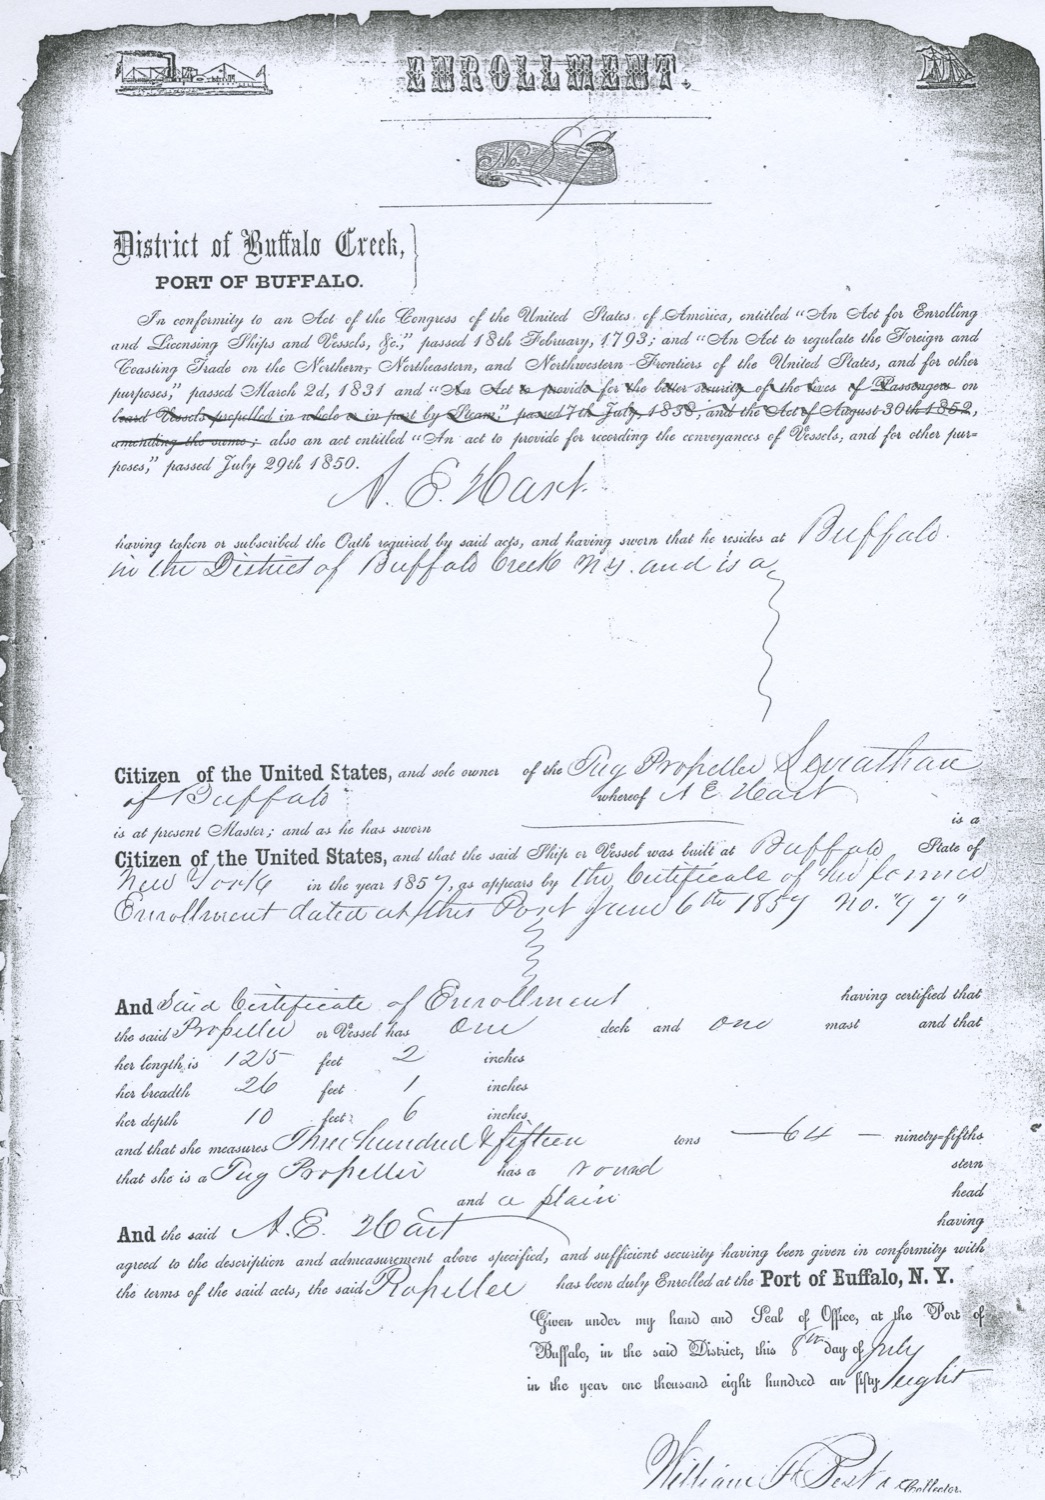 ENROLLMENT.
No. 89
District of Buffalo Creek,
PORT OF BUFFALO.
In conformity to an Act of the Congress of the United States of America, entitled "An Act for Enrolling
and Licensing Ships and Vessels, &c.," passed 18th February, 1793; and "An Act to regulate the Foreign and
Coasting Trade on the Northern, Northeastern, and Northwestern Frontiers of the United States, and for other
purposes," passed March 2d, 1831 and "An Act to provide for the better security of the lives of Passengers on
board Vessels propelled in whole or in part by Steam," passed 7th July, 1838, and the Act of August 30th 1852,
amending the same; also an act entitled "An act to provide for recording the conveyances of Vessels, and for other pur=
poses," passed July 29th 1850.
A. E. Hart
having taken or subscribed the Oath required by said acts, and having sworn that he resides at Buffalo
in the District of Buffalo Creek N.Y. and is a
Citizen of the United States, and sole owner of the Tug Propeller Leviathan
of Buffalo whereof A E Hart
is at present Master; and as he has sworn is a
Citizen of the United States, and that the said Ship or Vessel was built at Buffalo State of
New York in the year 1857, as appears by the Certificate of her former
Enrollment dated at this Port June 6th 1857 No. "97"
And Said Certificate of Enrollment having certified that
the said Propeller or Vessel has One deck and one mast and that
her length is 125 feet 2 inches
her breadth 26 feet 1 inches
her depth 10 feet 6 inches
and that she measures Three hundred & fifteen tons 64 ninety=fifths
that she is a Tug Propeller has a round stern
and a plain head
And the said A. E. Hart having
agreed to the description and admeasurement above specified, and sufficient security having been given in conformity with
the terms of the said acts, the said Propeller has been duly Enrolled at the Port of Buffalo, N. Y.
Given under my hand and Seal of Office, at the Port of
Buffalo, in the said District, this 8th day of July
in the year one thousand eight hundred an fifty eight
William F. Collector.